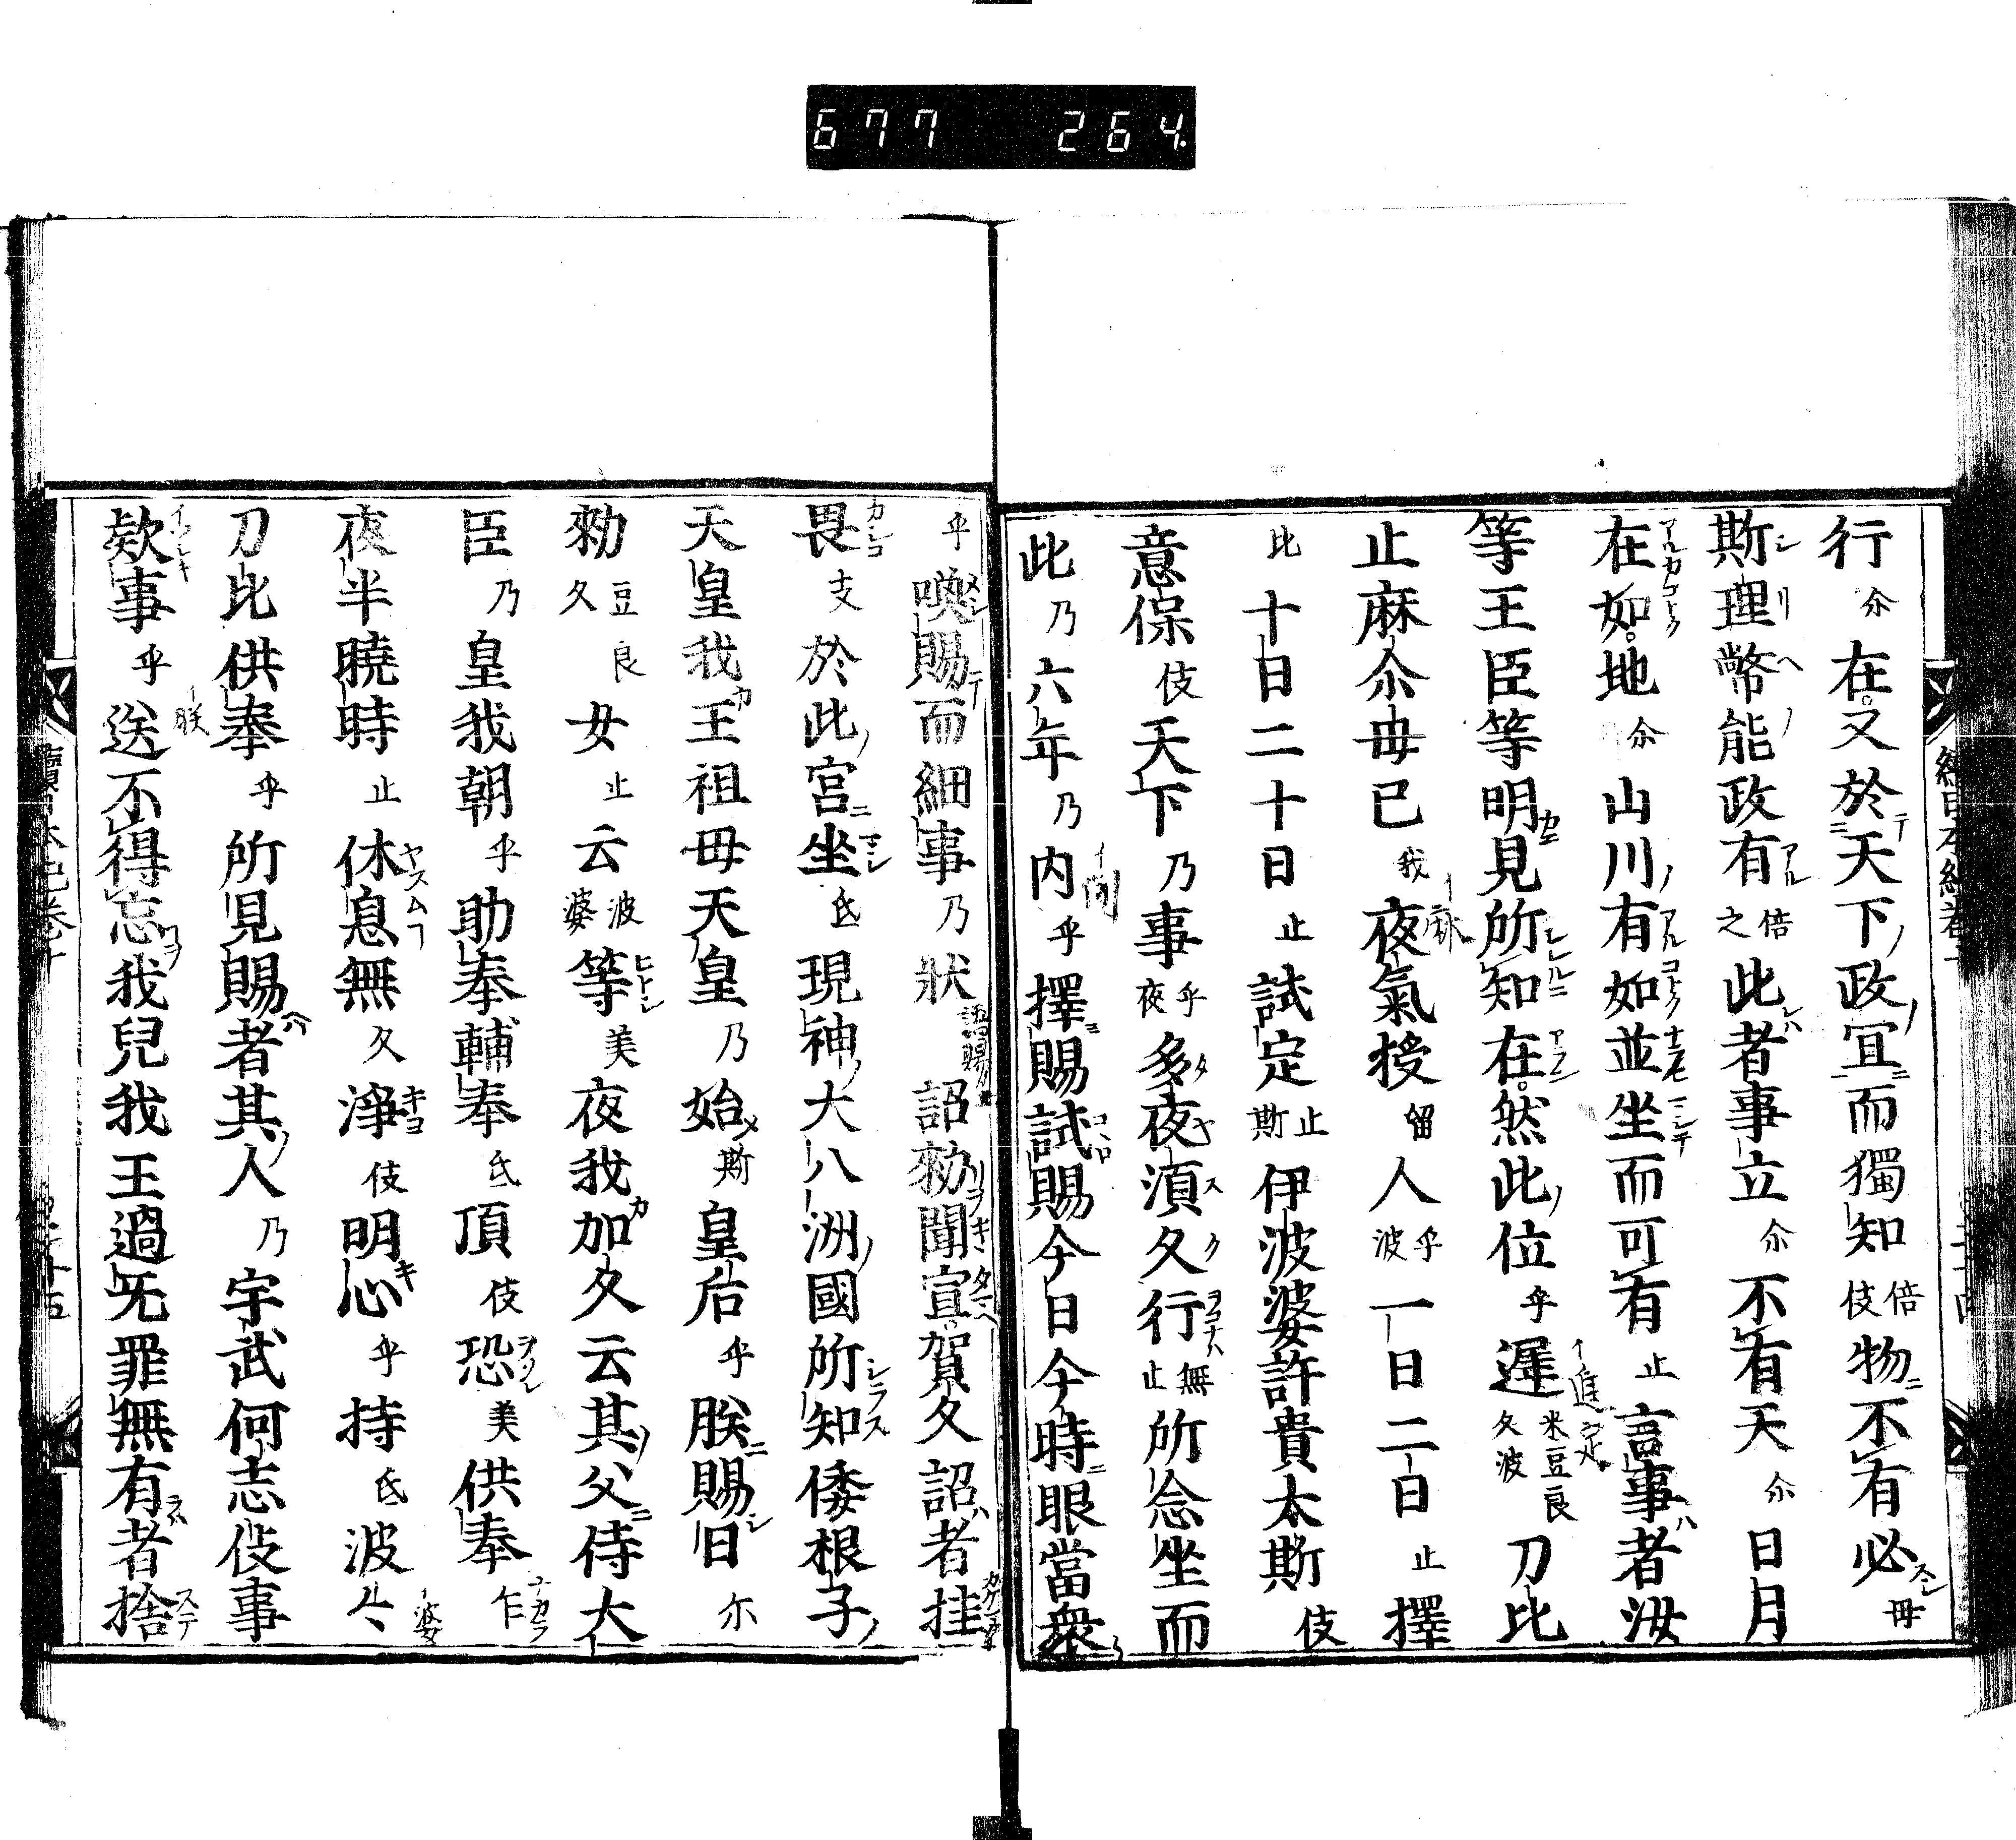 677 264
行尒在又於天下政冝而獨知倍伎物不有必母
斯理幣能政有倍之此者事立尒不有天尒日月
在如地尒山川有如並坐而可有止言事者汝
等王臣等明見所知在然此位乎遲米豆良久波刀比
止麻尒毋巳我夜氣授留人乎波一日二日止擇
比十日二十日止試定止斯伊波婆許貴太斯伎
意保伎天下乃事乎夜多夜湏久行無止所念坐而
此乃六年乃内乎擇賜試賜今日今時眼當衆
乎喚賜而細事乃狀語賜詔勑聞宣賀久詔者挂
畏支於此宮坐氐現神大八洲國所知倭根子
天皇我王祖母天皇乃始斯皇后乎朕賜日尒
勑豆良久女止云波婆等美夜我加久云其父侍大
臣乃皇我朝乎助奉輔奉氐頂伎恐美供奉乍
夜半曉時止休息無久淨伎明心乎持氐波〻
刀比供奉乎所見賜者其人乃宇武何志伎事
欵事乎送不得忘我兒我王過旡罪無有者捨